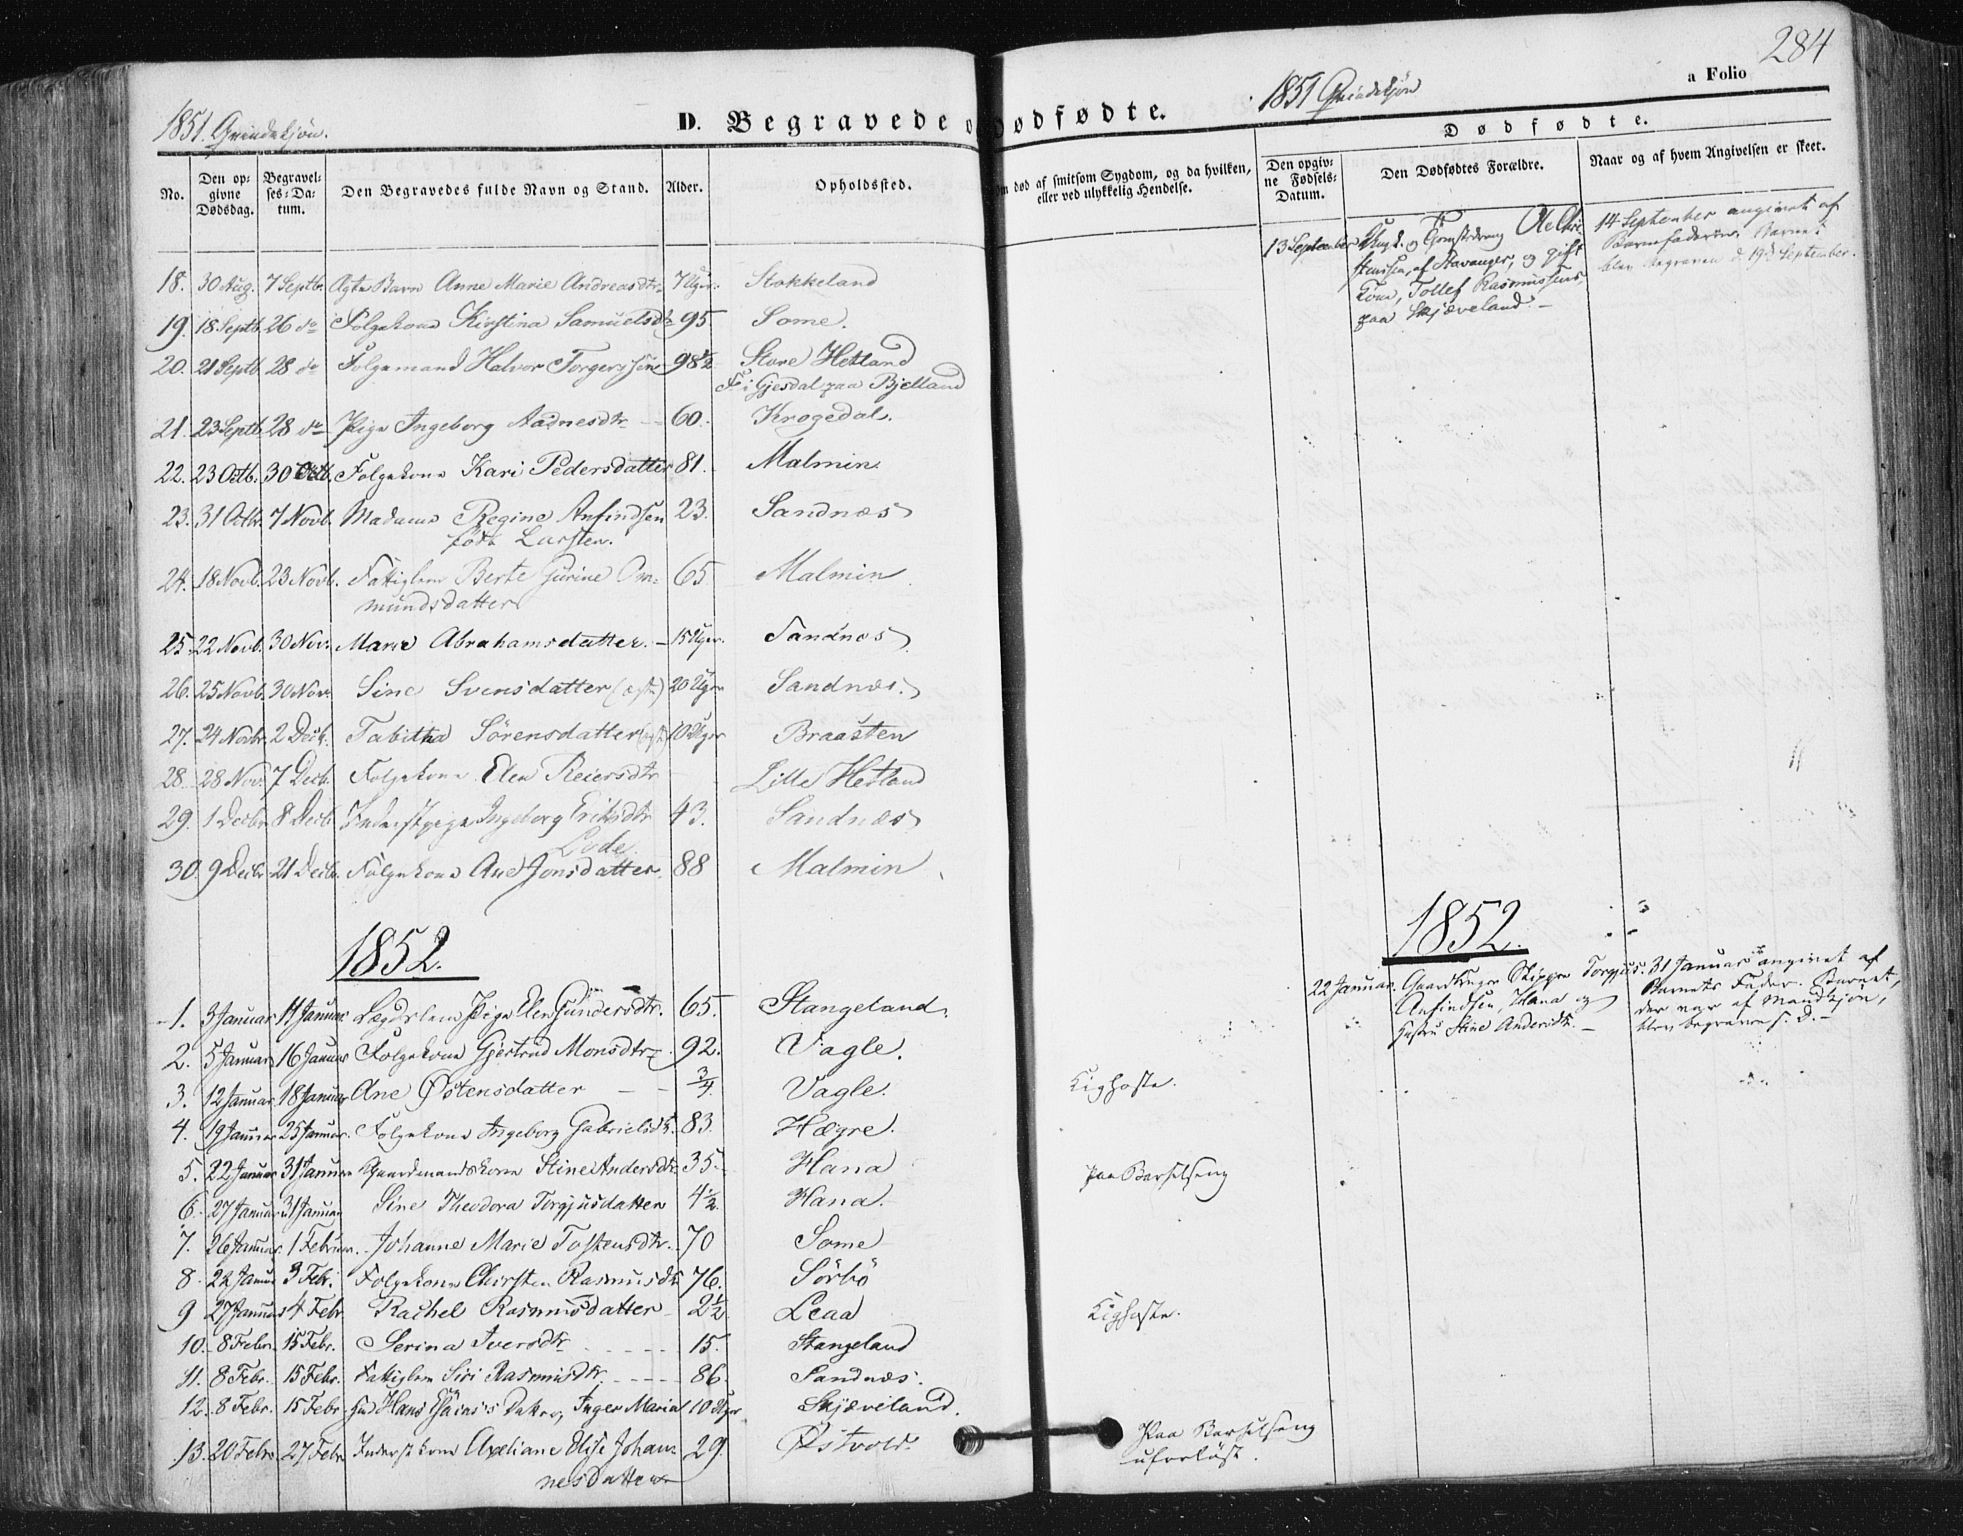 284
1851. Qvindekjön.
D. Begravede o
dødfødte.
1851 Qvindekjön
a Folio
Dødfødte.
No.
Den op-
givne
Dødsdag.
Begravel-
ses-Da-
tum.
Den Begravedes fulde Navn og Stand.
Alder.
Opholdssted.
m død af smitsom Sygdom, og da hvilken,
eller ved ulykkelig Hendelse.
Den opgiv-
ne Fødsels-
Datum.
Den Dødfødtes Forældre.
Naar og af hvem Angivelsen er skeet.
18. 30 Aug. 7 Septb. Ægte Barn Anne Marie Andreasdtr. 7 Uger. Stokkeland
19. 18 Septb. 26 do Folgekone Kirstina Samuelsdtr 95. Some.
20. 21 Septb. 28 do Folgemand Halvor Torgerssen 98½ Store Hetland
F. i Gjesdal paa Bjelland
21. 23 Septb. 28 do Pige Ingeborg Aadnesdtr 60. Krogedal.
22. 23 Octb. 30 Octb. Folgekone Kari Pedersdatter 81. Malmin.
23. 31 Octb. 7 Novb. Madame Regine Anfindsen 23. Sandnæs
født Lursten.
24. 18 Novb. 23 Novb. Fattiglem Berte Gurine Om- 65. Malmin
mundsdatter
25. 22 Novb. 30 Nov. Marie Abrahamsdatter. 15 Uger. Sandnæs
26. 25 Novb. 30 Nov. Sine Svensdatter (ægte) 20 Uger Sandnæs.
27. 24 Novbr. 2 Decb. Tabitha Sörensdatter (ægte) 10 Uger Braasten
28. 28 Nov. 7 Decb. Folgekone Elen Reiersdtr Lille Hetland
29. 1 Decbr 8 Decb. Inderstpige Ingeborg Eriksdtr 43. Sandnæs
Lode.
30. 9 Decbr. 21 Decb. Folgekone Ane Jonsdatter. 88 Malmin
13 September
Ungk. og Ole Chri
stensen, af Stavanger, og gift
Kone, Tollef Rasmussens
paa Skjæveland. –
14 September angivet af
Barnefaderen. Barnet
blev begraven d. 19d September.
1852.
1. 3 Januar 11 Januar Lægdslem Pige Elen Gundersdtr. 65. Stangeland.
2. 5 Januar 16 Januar Folgekone Gjertrud Monsdtr. 92. Vagle.
3. 12 Januar 18 Januar Ane Östensdatter ¾. Vagle. Kighoste.
4. 19 Januar 25 Januar. Folgekone Ingeborg Gabrielsdtr. 83. Hægre.
5. 22 Januar 31 Januar Gaardmandskone Stine Andersdtr. 35. Hana paa Barselseng
6. 27 Januar 31 Januar Sine Theodora Torgjusdatter 4½. Hana.
7. 26 Januar 1 Februar. Johanne Marie Tostensdtr. 70 Some
8. 22 Januar 3 Febr. Folgekone Chirsten Rasmusdtr 76. Sörbö
9 27 Januar 4 Febr. Rachel Rasmusdatter 2½ Leaa Kighoste.
10. 8 Febr. 15 Febr. Serina Iversdtr 15. Stangeland
11. 8 Febr. 15 Febr. Fattiglem Siri Rasmusdtr. 86. Sandnæs.
12. 8 Febr. 15 Febr. Hans Datter, Inger Maria 10 Uger Skjæveland.
13. 20 Febr. 27 Febr. Inderstkone Axeliane Elise Johan- 29. Östvold. Paa Barselseng
nesdatter uforløst.
1852.
22 Januar.
Gaardbruger Skipper Torgjus
Anfindsen, Hana og
Hustru Stine Andersdtr. –
31 Januar angivet af
Barnets Fader. Barnet,
der var af Mandkjön,
blev begravet s. D. –